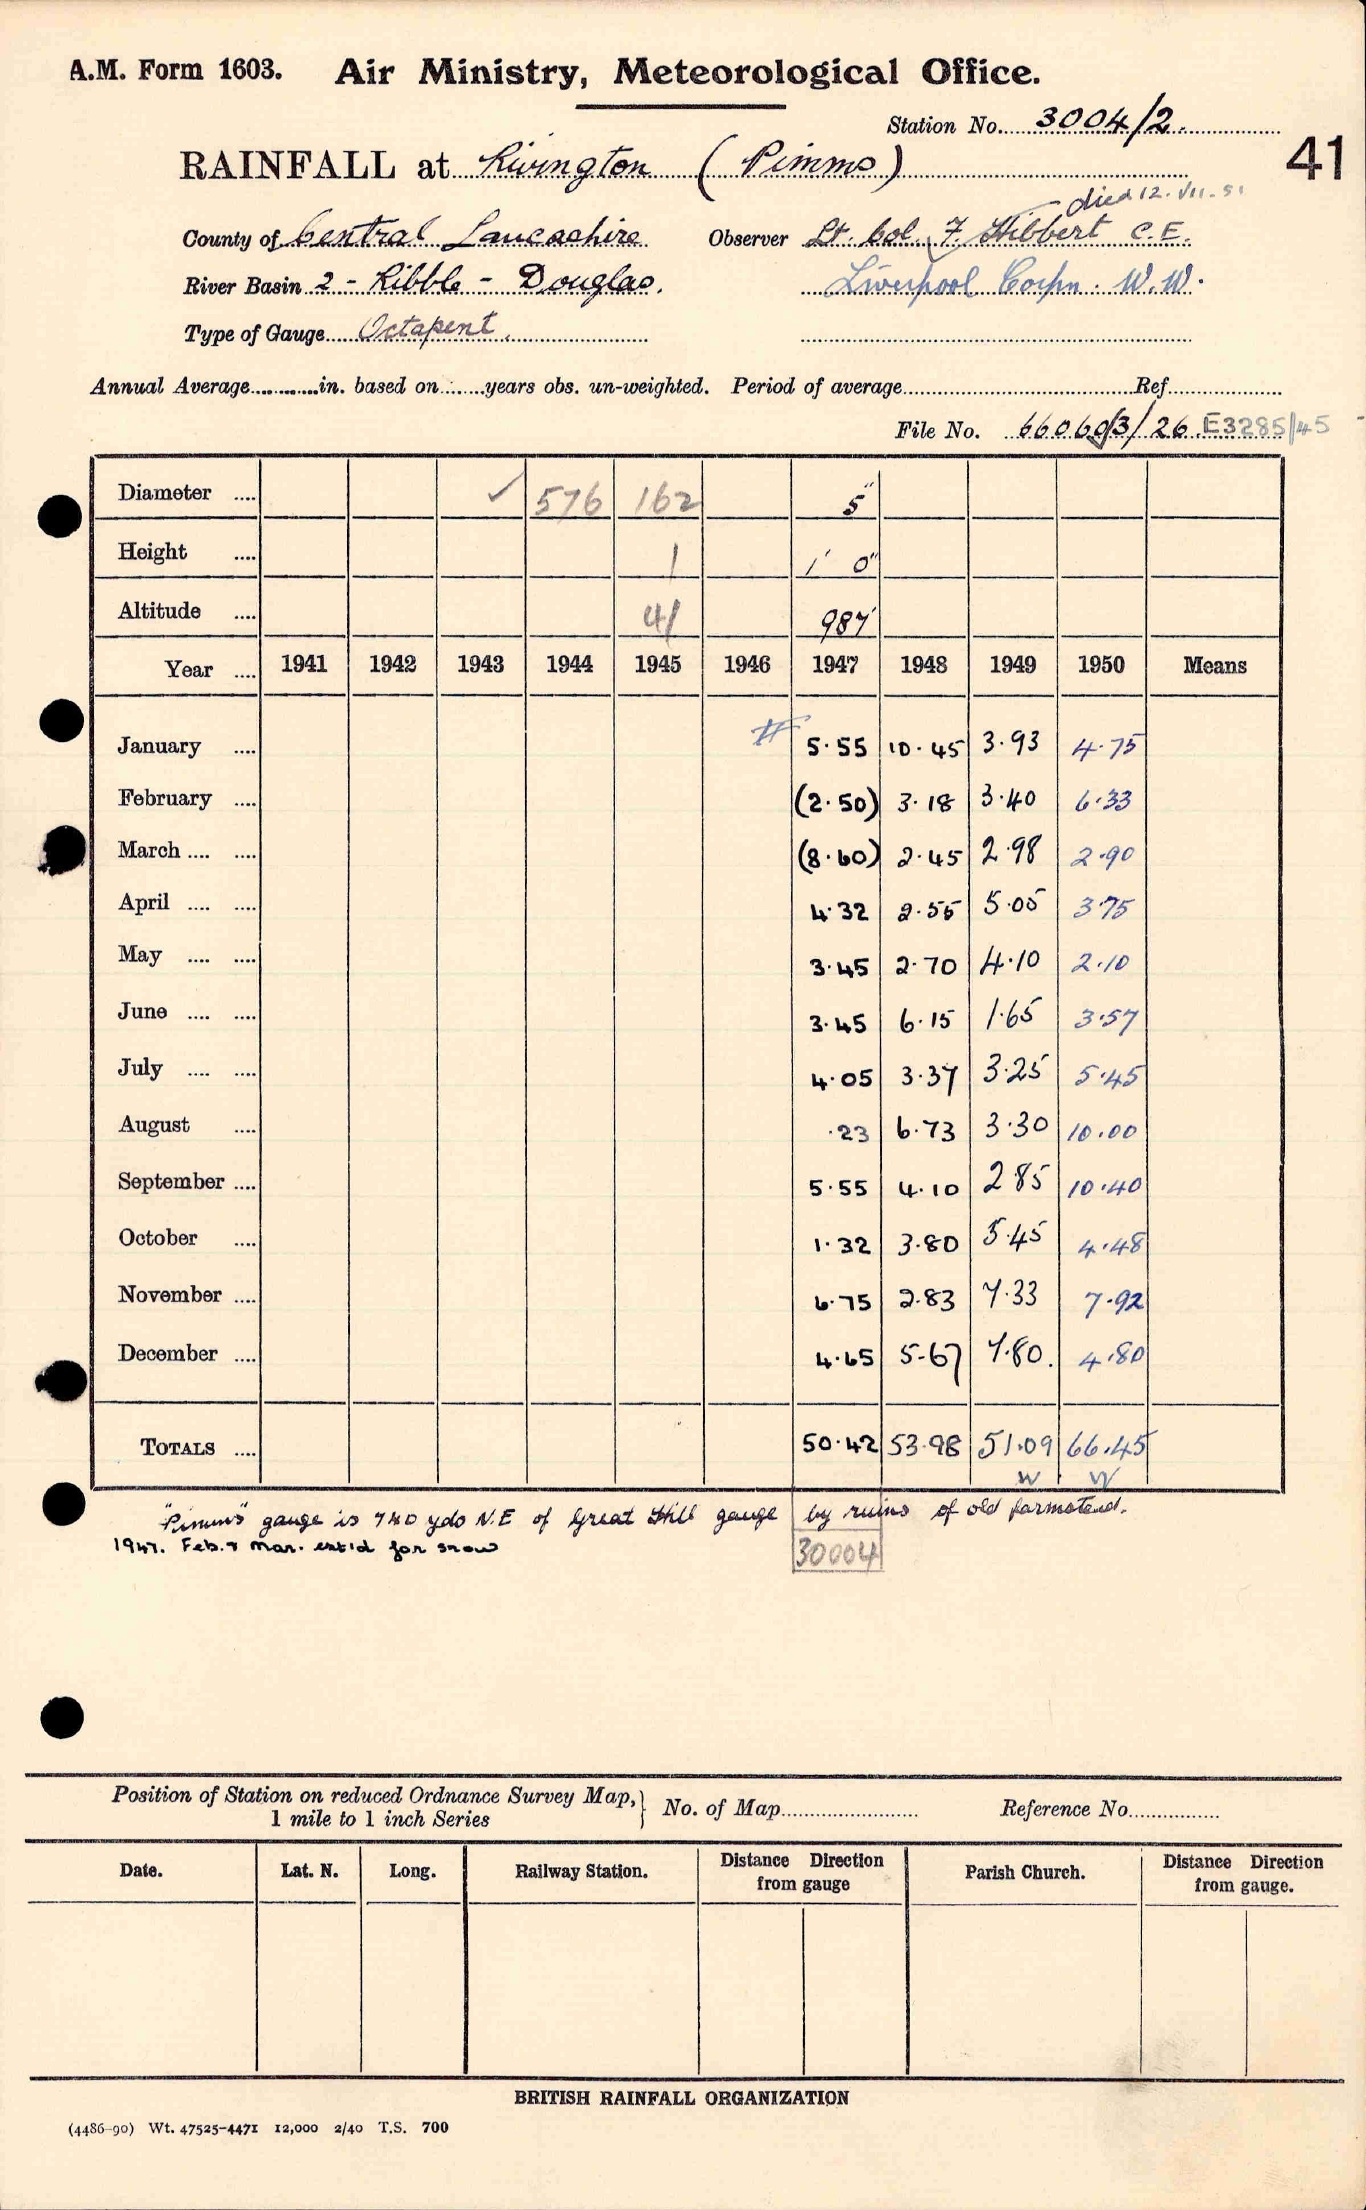 A.M. Form 1603. Air Ministry, Meteorological Office.
Station No. 3004/2.
41
RAINFALL at Rivington (Pimms)
died 12.VII.51
County of Central Lancashire Observer Lt. Col. F. Hibbert C.E.
River Basin 2 - Ribble - Douglas. Liverpool Corpn. W.W.
Type of Gauge Octapent.
Annual Average in. based on years obs. un-weighted. Period of average Ref
File No. 66060/3/26 E3285/45
Diameter .... ✓ 576 162 5"
Height .... 1 1' 0"
Altitude .... 41 987'
Year .... 1941 1942 1943 1944 1945 1946 1947 1948 1949 1950 Means
January .... # 5.55 10.45 3.93 4.75
February .... (2.50) 3.18 3.40 6.33
March .... .... (8.60) 2.45 2.98 2.90
April .... .... 4.32 2.55 5.05 3.75
May .... .... 3.45 2.70 4.10 2.10
June .... .... 3.45 6.15 1.65 3.57
July .... .... 4.05 3.37 3.25 5.45
August .... .23 6.73 3.30 10.00
September .... 5.55 4.10 2.85 10.40
October .... 1.32 3.80 5.45 4.48
November .... 6.75 2.83 7.33 7.92
December .... 4.65 5.67 7.80. 4.80
TOTALS .... 50.42 53.98 51.09 66.45
W W
"Pimms" gauge is 740 yds N.E of Great Hill gauge by ruins of old farmstead.
1947. Feb. & Mar. est'd for snow
30004
Position of Station on reduced Ordnance Survey Map, 1 mile to 1 inch Series } No. of Map Reference No.
Date. Lat. N. Long. Railway Station. Distance Direction from gauge Parish Church. Distance Direction from gauge.
BRITISH RAINFALL ORGANIZATION
(4486-90) Wt. 47525-4471 12,000 2/40 T.S. 700